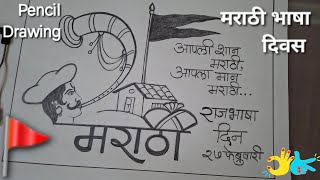 Pencil
Drawing
मराठी भाषा
दिवस
आपली शान
मराठी,
आपला मान
मराठी...
राजभाषा
दिन
२७फेब्रुवारी
मराठी